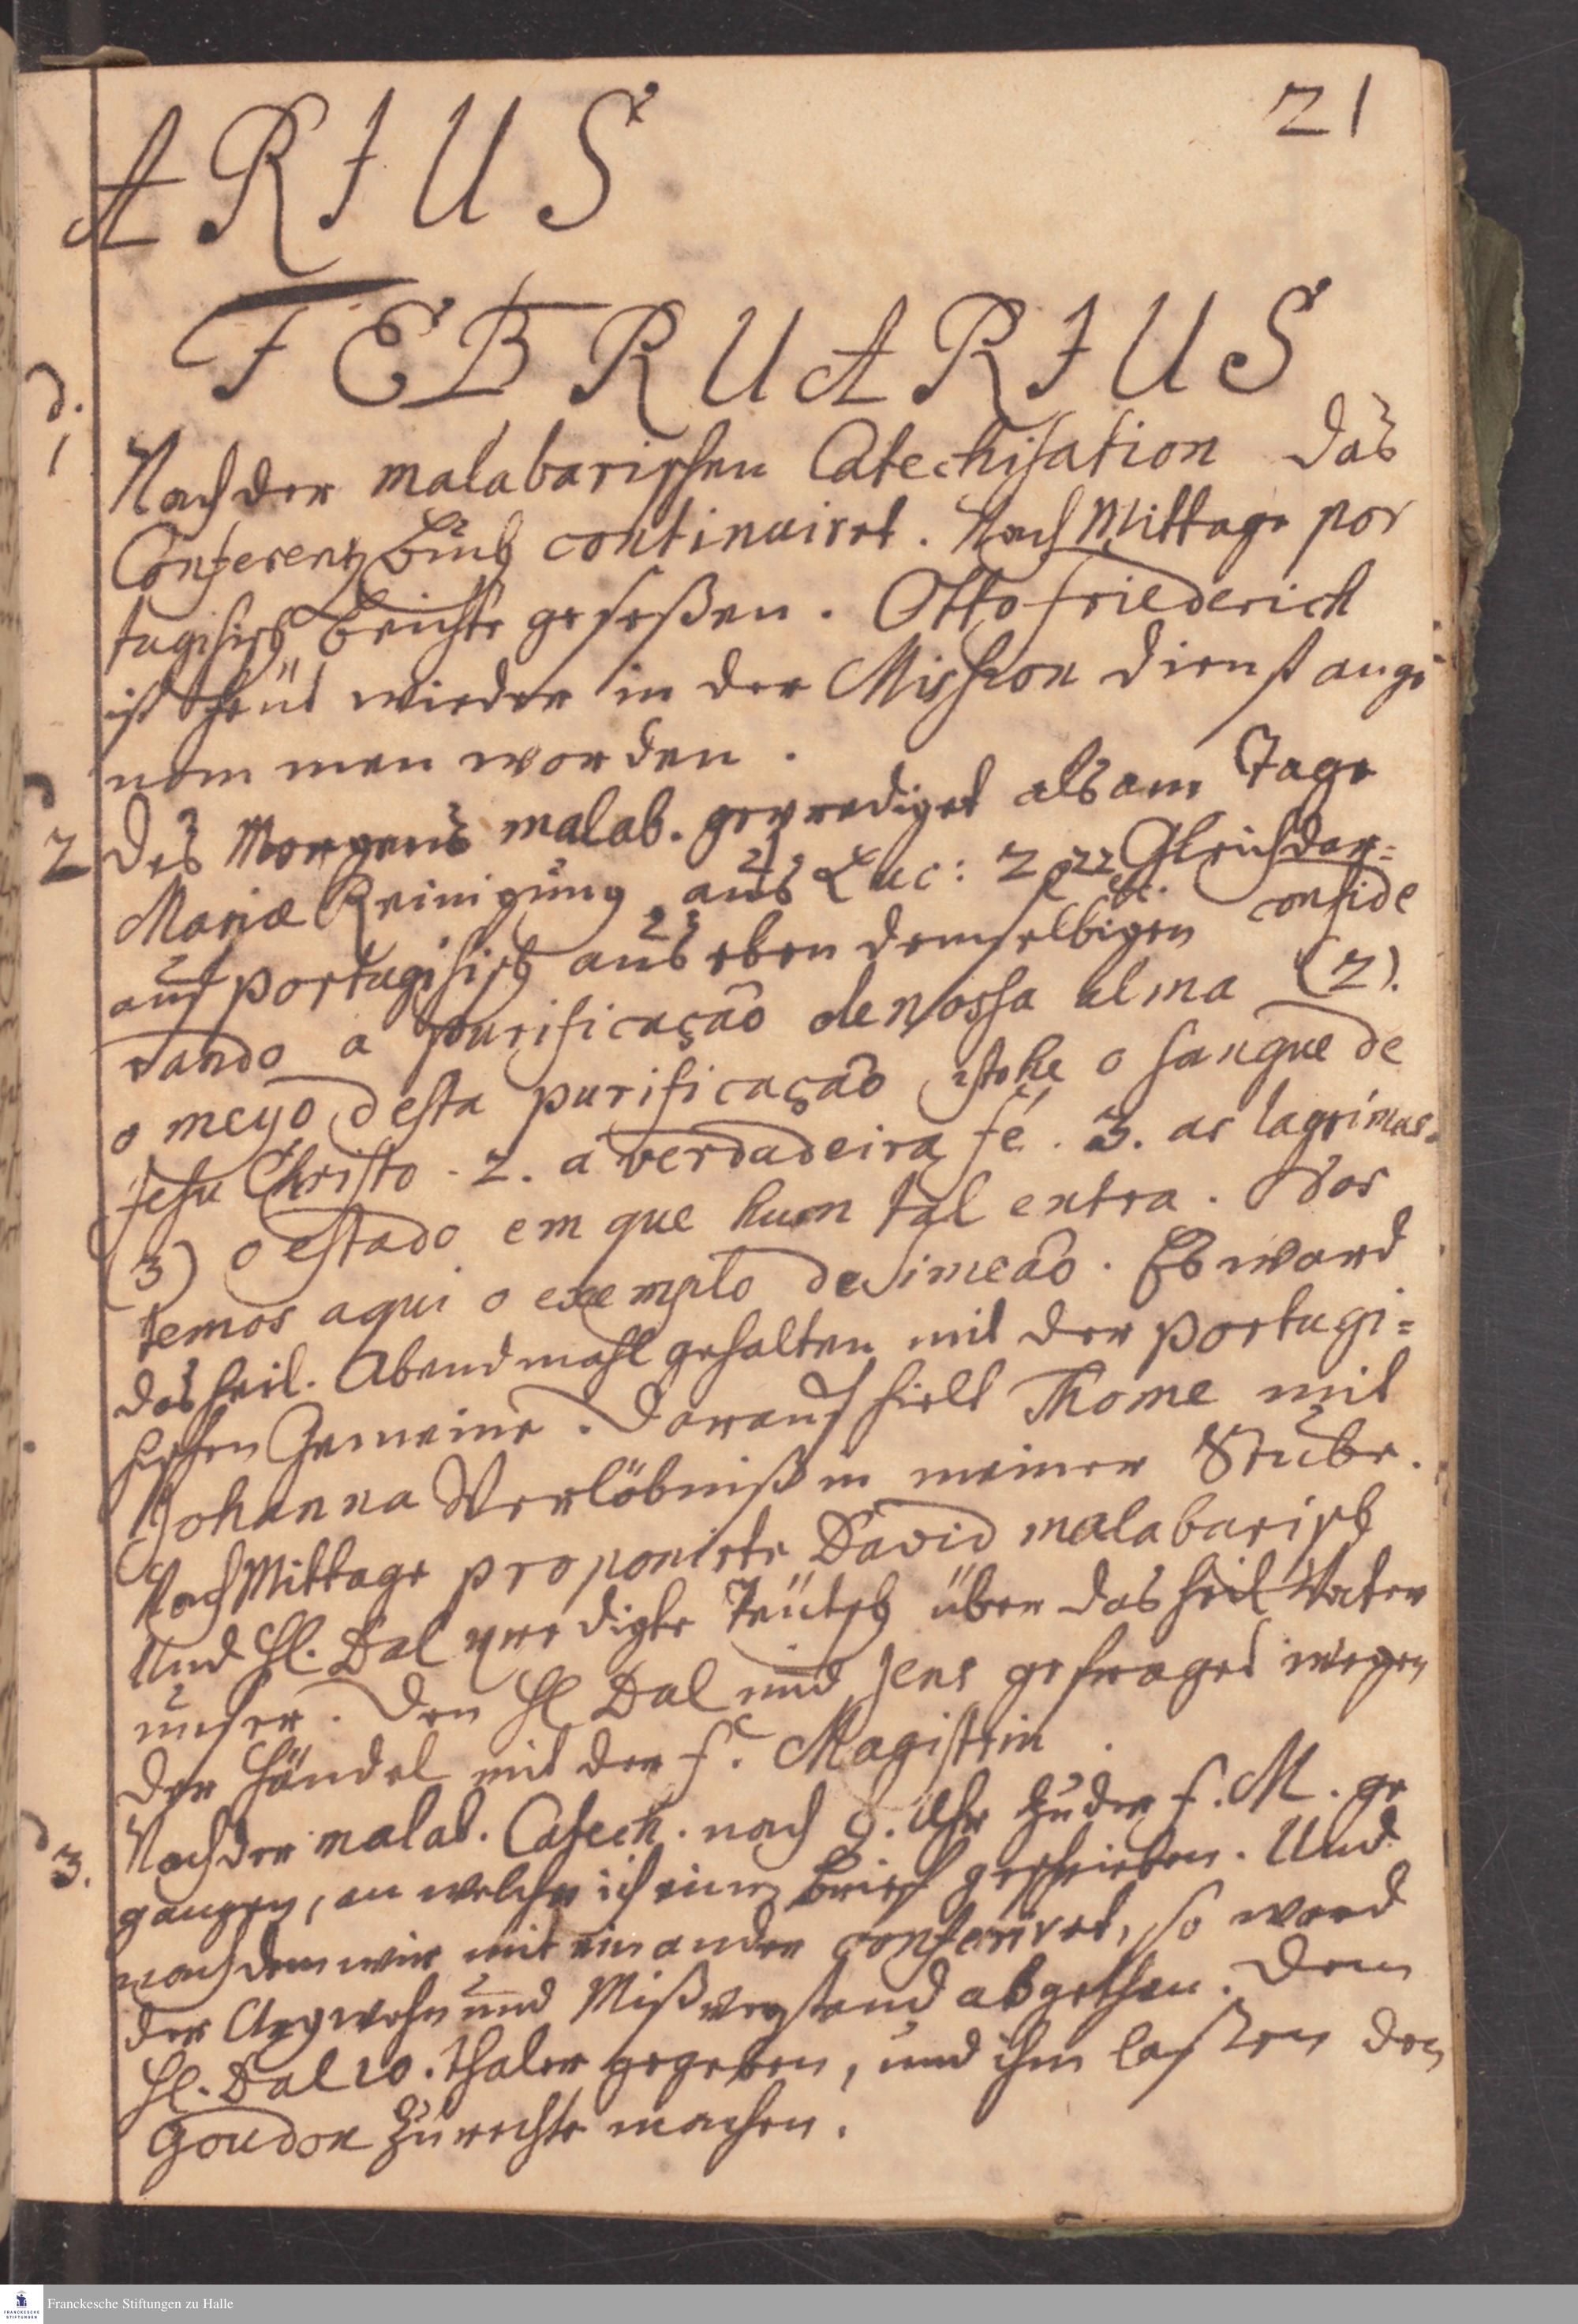 21
ARIUS
FEBRUARIUS
d.
1 Nach der malabarischen Catechisation das
Conferenz Buch continuiret. Nach Mittage por
tugisisch Beichte geseßen. Otto Friederich
ist heut wieder in der Mission Dienst ange
nommen worden.
2 Des Morgens malab. geprediget als am Tage
Mariæ Reinigung aus Luc: 2, 22 Gleich dar=
auf portugisisch aus eben demselbigen conside
rando a purificação de nossa alma (2).
o meyo desta purificação isto he o sangue de
Jesu Christo. 2. a verdadeira fé. 3. as lagrimas.
3) o estado em que hum tal entra. Nos
temos aqui o exemplo de Simeaõ. Es ward
das heil. Abendmahl gehalten mit der portugi=
sischen Gemeine. Darauf hielt Thome mit
Johanna Verlöbniß in meiner Stube.
Nach Mittage proponirte David malabarisch
Und H. Dal predigte Teütsch über das heil Vater
unser. Den H Dal und Jens gefraget wegen
der Händel mit der F. Magistrin.
3. Nach der malab. Catech. nach 8. Uhr zu der F. M. ge
gangen, an welche ich einen Brief geschrieben. Und
nachdem wir mit einander conferiret, so ward
der Argwohn und Mißverstand abgethan. Dem
H. Dal 10. Thaler gegeben, und ihm laßen den
Goudon zurechte machen.
Franckesche Stiftungen zu Halle